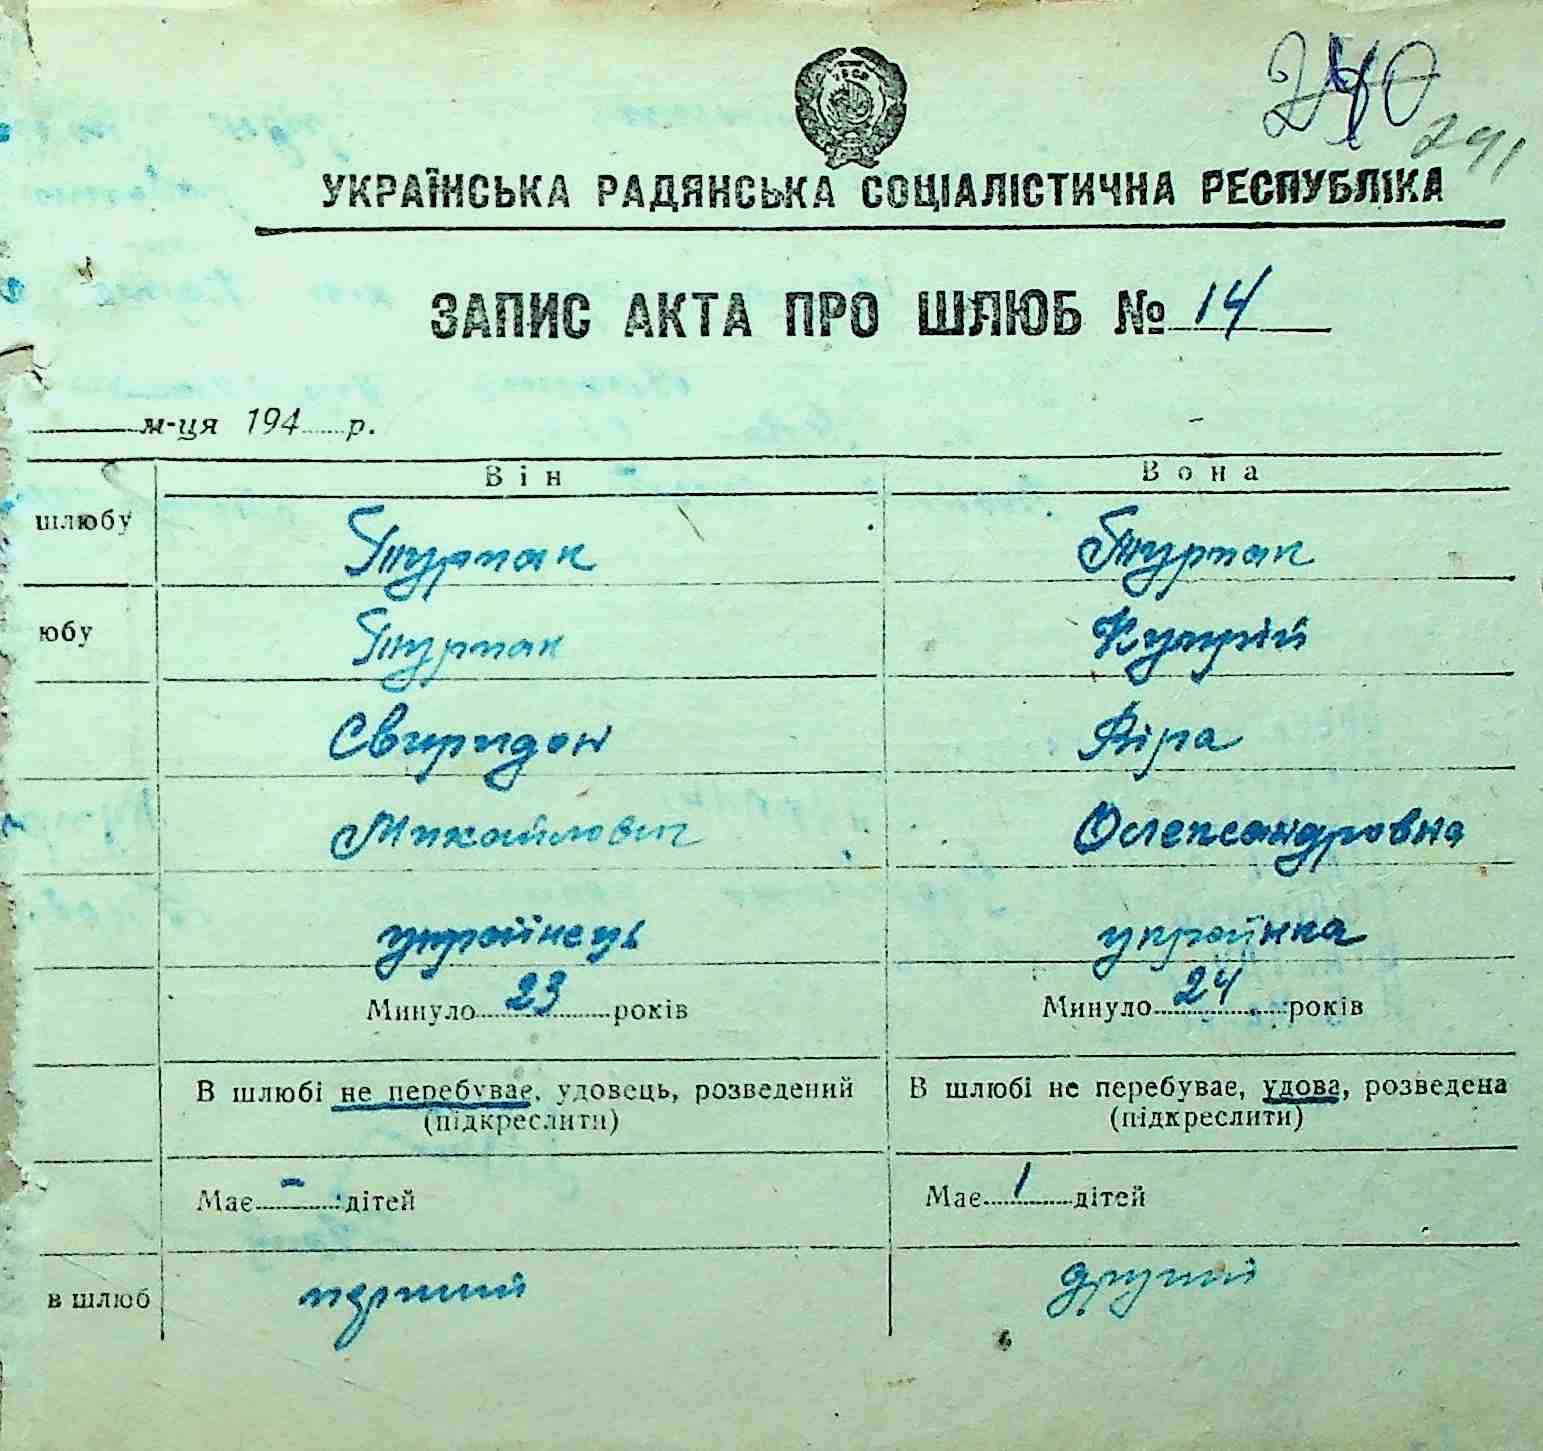 240
241
УКРАЇНСЬКА РАДЯНСЬКА СОЦІАЛІСТИЧНА РЕСПУБЛІКА
ЗАПИС АКТА ПРО ШЛЮБ № 14
м-ця 194 р.
Він Вона
шлюбу Турпак Турпак
юбу Турпак Купрій
Свиридон Віра
Михайлович Олександровна
українець українка
Минуло 23 років Минуло 24 років
В шлюбі не перебуває, удовець, розведений В шлюбі не перебуває, удова, розведена
(підкреслити) (підкреслити)
Має - дітей Має 1 дітей
в шлюб перший другий